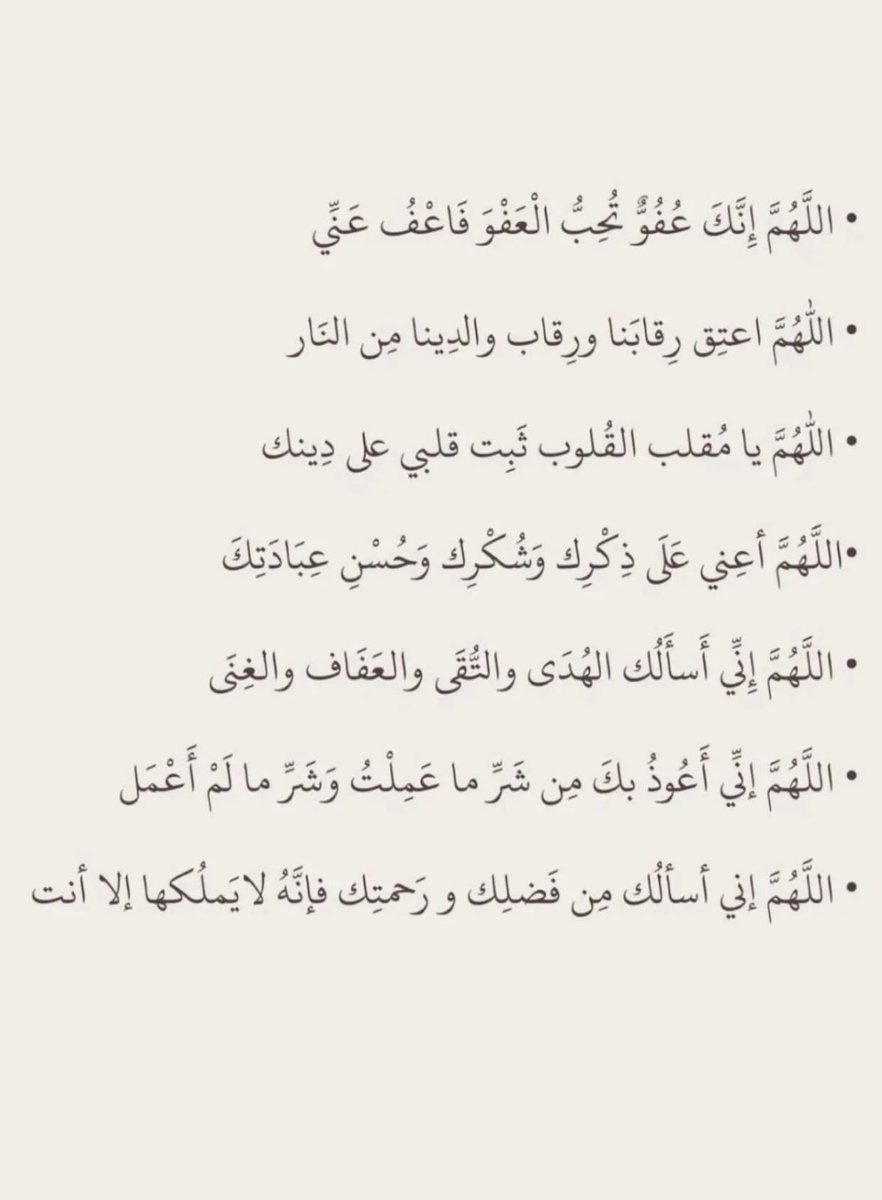 • اللَّهُمَّ إِنَّكَ عُفُوٌّ تُحِبُّ الْعَفْوَ فَاعْفُ عَنِّي
• اللّٰهُمَّ اعتِق رِقابَنا ورِقاب والدِينا مِن النَار
• اللّٰهُمَّ يا مُقلب القُلوب ثَبِت قلبي على دِينك
•اللَّهُمَّ أعِني عَلَى ذِكْرِك وَشُكْرِك وَحُسْنِ عِبَادَتِكَ
• اللَّهُمَّ إِنِّي أَسأَلُك الهُدَى والتُّقَى والعَفَاف والغِنَى
• اللَّهُمَّ إنِّي أَعُوذُ بكَ مِن شَرِّ ما عَمِلْتُ وَشَرِّ ما لَمْ أَعْمَل
• اللَّهُمَّ إني أسألُك مِن فَضلِك و رَحمتِك فإنَّهُ لايَملُكها إلا أنت